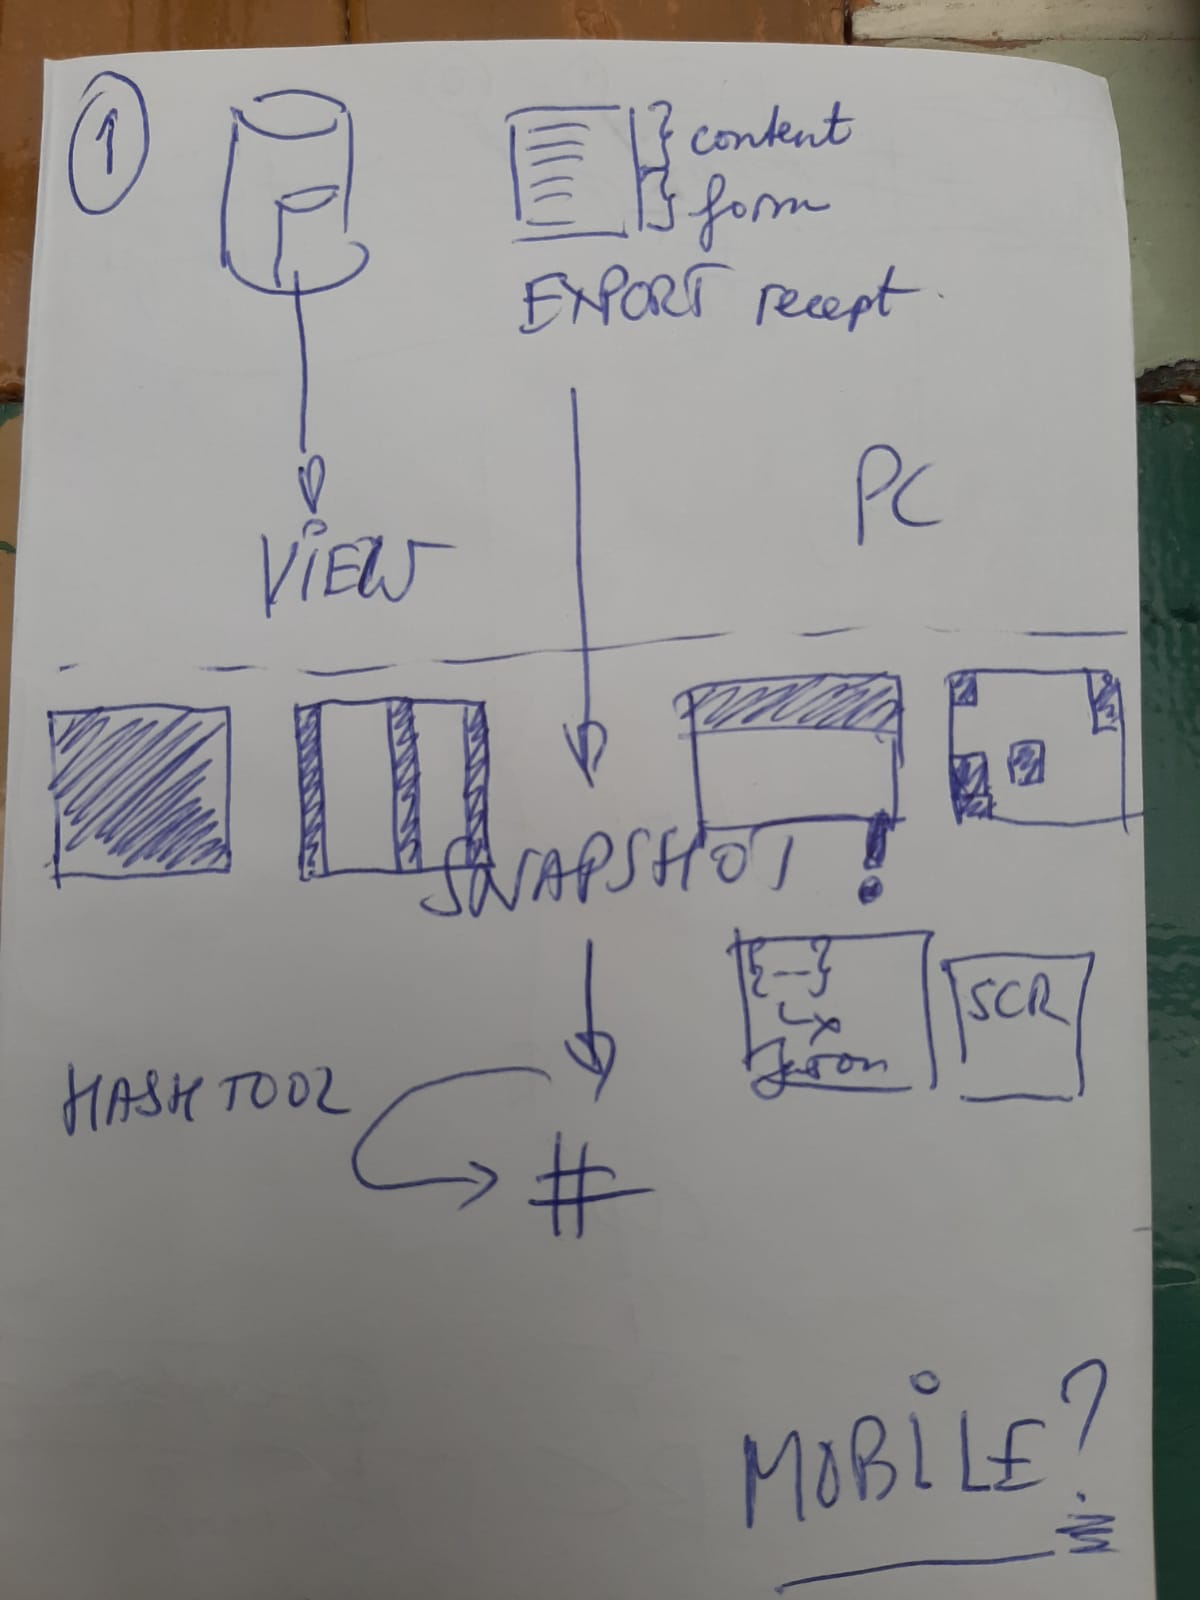 1
content
form
EXPORT recept
PC
VIEW
SNAPSHOT !
{—}
SCR
HASHTOOL
#
MOBILE?